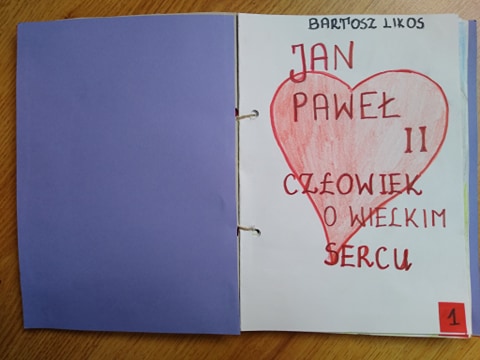 BARTOSZ LIKOS
JAN
PAWEŁ
II
CZŁOWIEK
O WIELKIM
SERCU
1